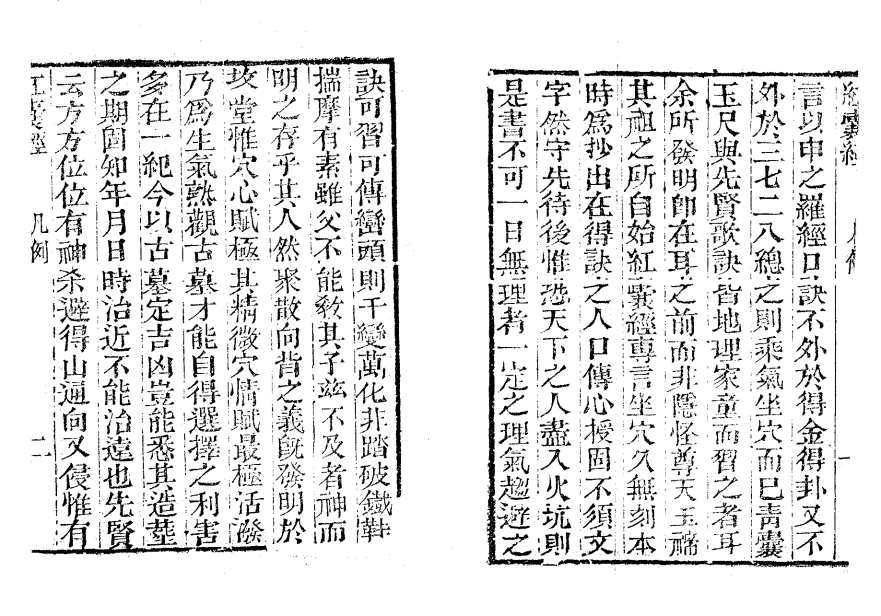 紅囊經 凡例 一
言以申之羅經口訣不外於得金得卦又不
外於三七二八總之則乘氣坐穴而已靑囊
玉尺與先賢歌訣皆地理家童而習之者耳
余所發明卽在耳之前而非隱怪尊天玉禘
其祖之所自始紅囊經專言坐穴久無刻本
時爲抄出在得訣之人口傳心授固不須文
字然守先待後惟恐天下之人盡入火坑則
是書不可一日無理者一定之理氣趨避之
訣可習可傳巒頭則千變萬化非踏破鐵鞋
揣摩有素雖父不能敎其子玆不及者神而
明之存乎其人然聚散向背之義旣發明於
堂惟穴心賦極其精微穴情賦最極活潑
乃爲生氣熟觀古墓才能自得選擇之利害
多在一紀今以古墓定吉凶豈能悉其造塟
之期固知年月日時治近不能治遠也先賢
云方方位位有神杀避得山逼向又侵惟有
紅囊經 凡例 二